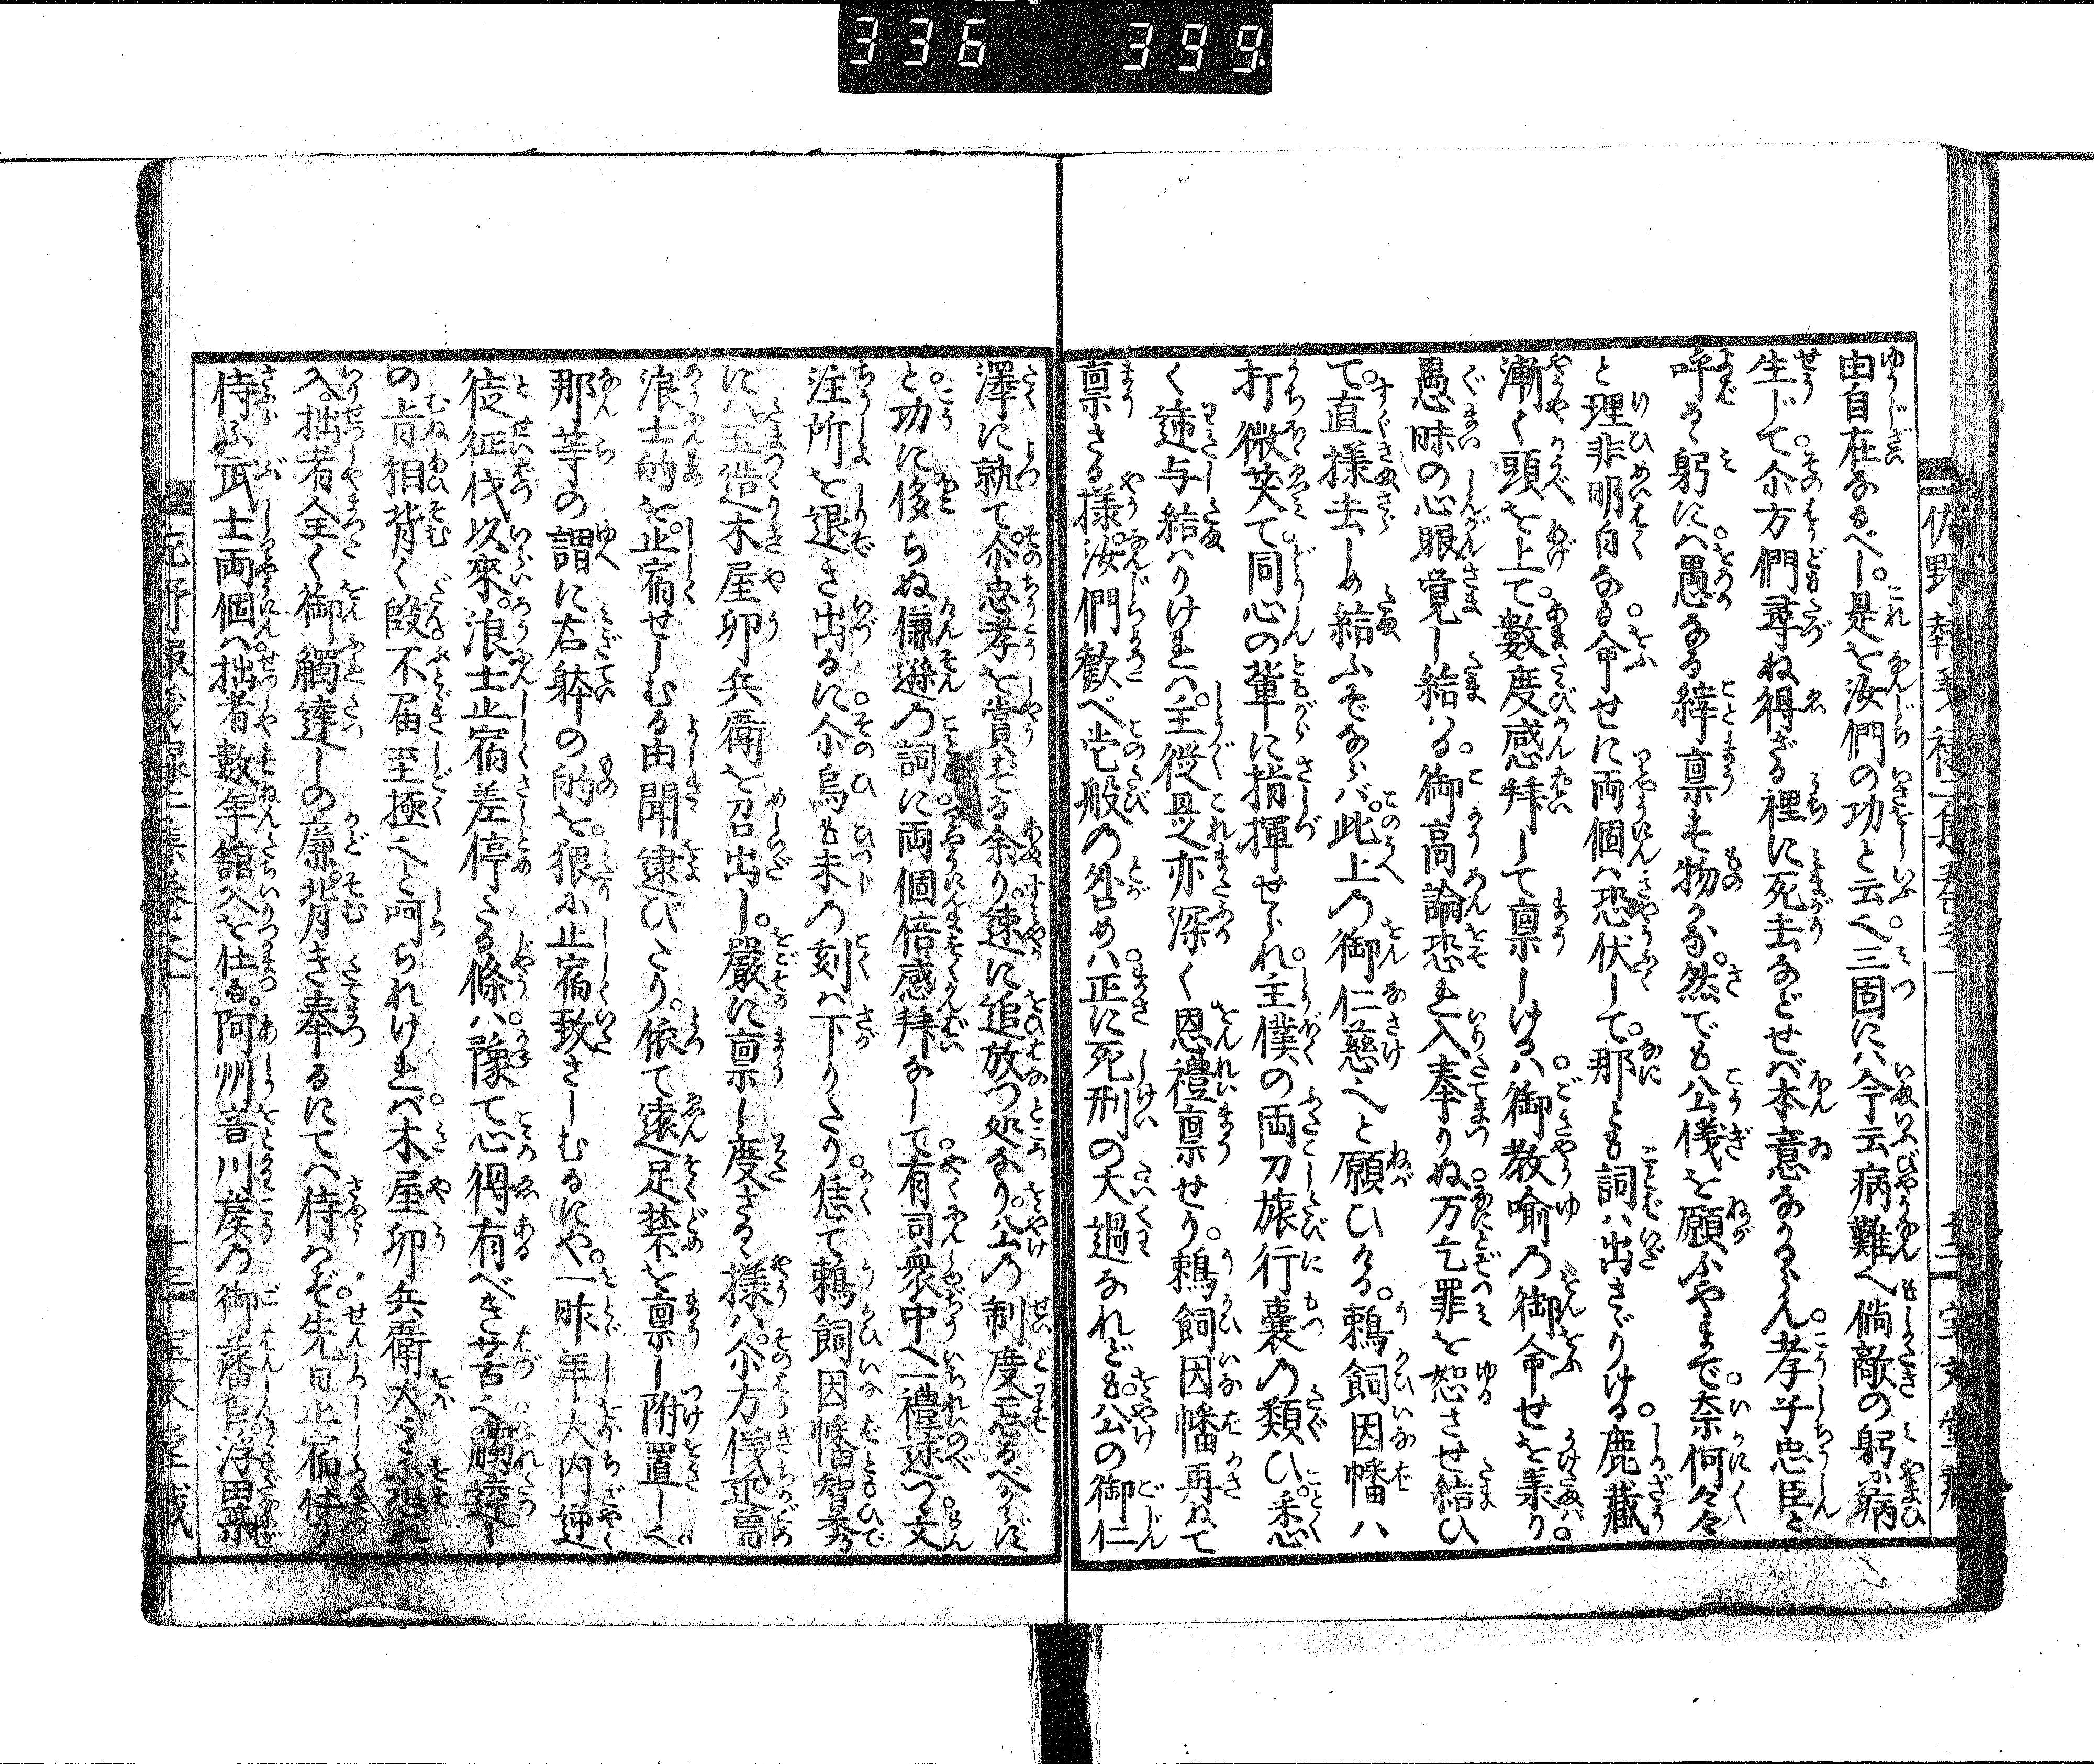 336 399
由自在なるべし。是を汝們の功と云へ三固にハ今云病難へ倘敵の躬に病
生じて尓方們尋ね得ざる裡に死去などせバ本意なからん。孝子忠臣と
呼るゝ躬にハ愚なる縡稟す物かな。然でも公儀を願ふやまで。奈何々々
と理非明白なる命せに両個ハ恐伏して。那とも詞ハ出ざりける。鹿藏
漸く頭を上て。數度感拜して稟しけるハ。御教喻の御命せを承り
愚昧の心眼覚し給はる。御高論恐れ入奉りぬ。万乞罪を恕させ給ひ
て。直様去しめ給ふぞならバ。此上の御仁慈へと願ひける。鵜飼因幡ハ
打微笑て。同心の輩に指揮せられ。主僕の両刀旅行嚢の類ひ。悉
く遞与給ハりけれバ。主從是亦深く恩禮稟せり。鵜飼因幡再ねて
稟さる様。汝們歓べ壱般の咎めハ。正に死刑の大過なれども。公の御仁
澤に執て。尓忠孝を賞ずる余り。速に追放つ処なり。公の制度忘るべからず
と。功に侈らぬ傔遜の詞に。両個倍感拜なして。有司衆中へ一禮述つ。文
注所を退き出るに。尓烏も未の刻ハ下りたり。恁て鵜飼因幡智秀
に。玉造木屋卯兵衛を召出し。嚴に稟し度さるゝ様ハ。尓方儀近曽
浪士的を。止宿せしむる由聞逮びたり。依て遠足禁を稟し附置しへ。
那等の謂に右躰の的を。猥に止宿致さしむるにや。一昨年大内逆
徒征伐以來。浪士止宿差停たる條ハ。豫て心得有べき筈へ。觸達し
の肯相背く段。不届至極へと呵られけれバ。木屋卯兵衛大きに恐れ
入。拙者全く御觸達しの廉。背き奉るにてハ侍はず。先日止宿仕り
侍ふ武士両個ハ。拙者數年舘入を仕る。阿州音川矦の御藩臣。浮田